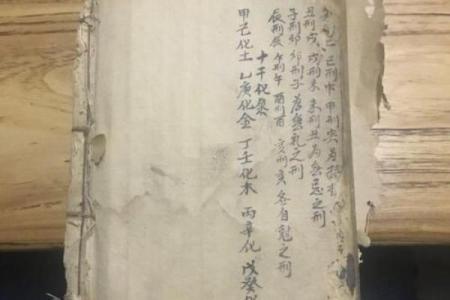 巳刑申 申刑寅 為
丑刑戌 戌刑未 未刑丑為無恩之刑
子刑卯 卯刑子 為無礼之刑
辰刑辰 午刑午 酉刑酉 亥刑亥 自之刑
十干化
甲己化土 乙庚化金 丁壬化木 丙辛化 戊癸